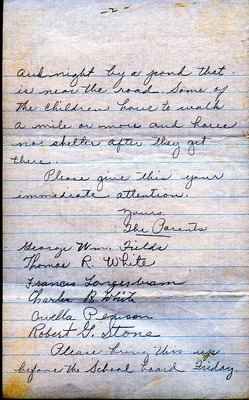 -2-
and night by a pond that
is near the road. Some of
the children have to walk
a mile or more and have
no shelter after they get
there.
Please give this your
immediate attention.
Yours,
The Parents
George Wm. Fields
Thomas R White
Francis
Charles R White
Pearson
Robert G. Stone
Please bring this up
before the School board Friday.